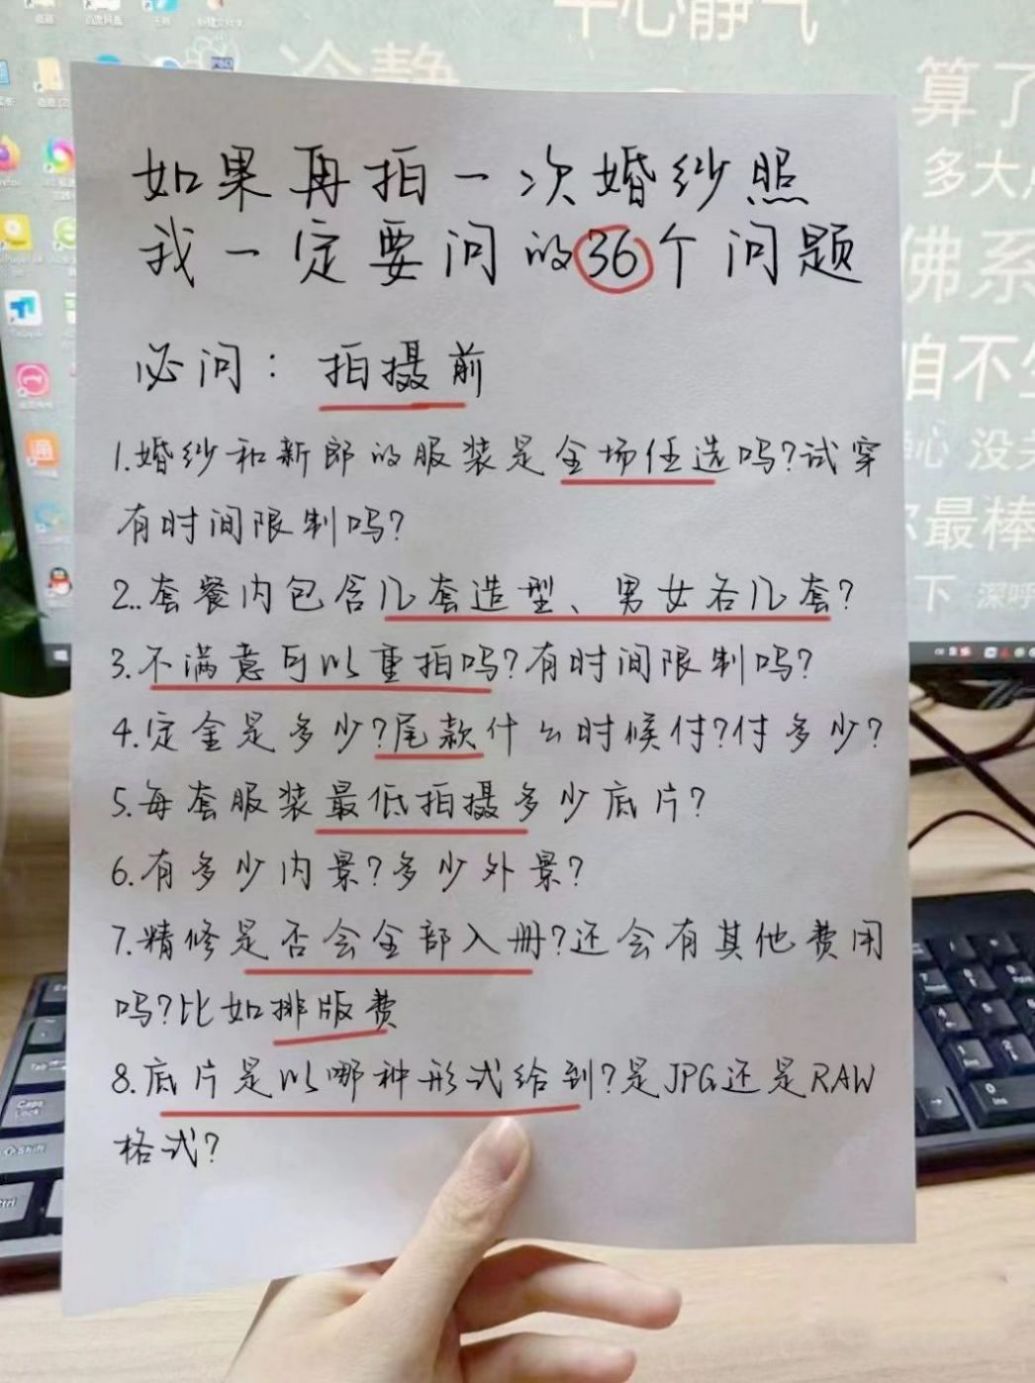 平心静气
冷静
算了
多大
佛系
咱不
没
最棒
下 深呼
如果再拍一次婚纱照
我一定要问的36个问题
必问：拍摄前
1.婚纱和新郎的服装是全场任选吗?试穿
有时间限制吗?
2..套餐内包含几套造型、男女各几套?
3.不满意可以重拍吗?有时间限制吗?
4.定金是多少?尾款什么时候付?付多少?
5.每套服装最低拍摄多少底片?
6.有多少内景?多少外景?
7.精修是否会全部入册?还会有其他费用
吗?比如排版费
8.底片是以哪种形式给到?是JPG还是RAW
格式?